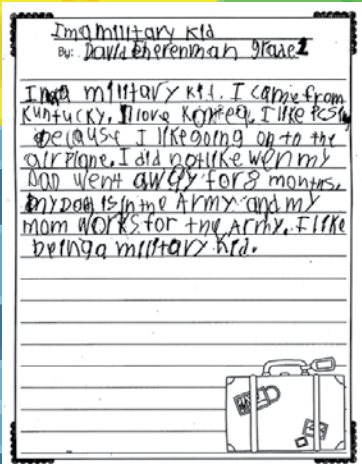 Im a military kid
By: David Eherenman grade 1
Im a military kid. I came from
Kuntucky. I love Korea. I like PCSing
because I like going on to the
airplane. I did not like wen my
Dad went away for 8 months.
my Dad is in the Army and my
mom works for the Army. I like
being a military kid.